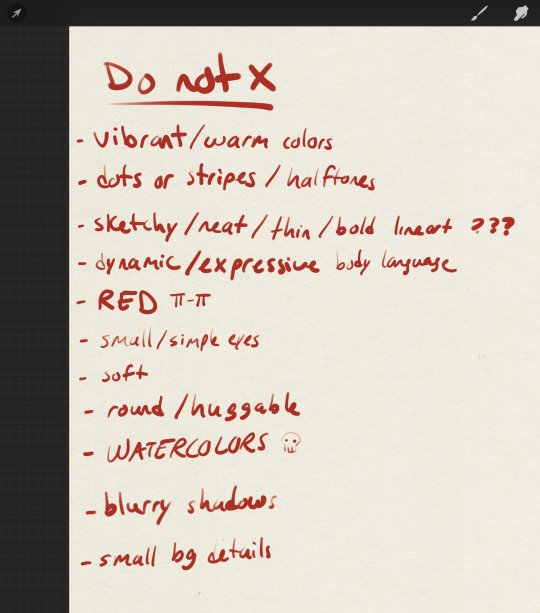 Do not X
- vibrant/warm colors
- dots or stripes / halftones
- sketchy/neat/thin/bold lineart ???
- dynamic/expressive body language
- RED π-π
- small/simple eyes
- soft
- round/huggable
- WATERCOLORS 💀
- blurry shadows
- small bg details